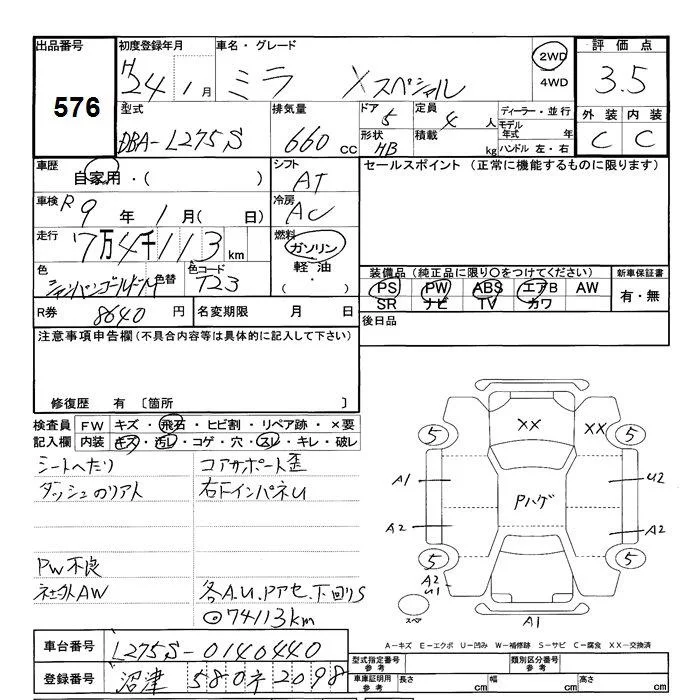 出品番号 576
初度登録年月 H24年 1月
車名・グレード ミラ Xスペシャル
2WD
4WD
評価点 3.5
外装 内装
C C
型式 DBA-L275S
排気量 660 cc
ドア 5
定員 4人
形状 HB
積載 kg
ディーラー・並行
モデル年式 年
ハンドル 左・右
車歴 自家用・( )
シフト AT
セールスポイント (正常に機能するものに限ります)
車検 R9年 1月 ( 日)
冷房 AC
走行 7万4千113 km
燃料 ガソリン
軽油
・( )
色 シャンパンゴールドM
色替
色コード T23
装備品 (純正品に限り○をつけてください)
新車保証書
PS PW ABS エアB AW
有・無
SR ナビ TV カワ
R券 8640 円
名変期限 月 日
後日品
注意事項申告欄 (不具合内容等は具体的に記入して下さい)
修復歴 有 〔箇所 〕
検査員 FW キズ・飛石・ヒビ割・リペア跡・×要
記入欄 内装 キズ・汚レ・コゲ・穴・スレ・キレ・破レ
シートへたり コアサポート歪
ダッシュのリアト 右下インパネU
PW不良
社外AW 各A.U.Pアセ.下回りS
◎74113km
XX XX
5 5
A1 U2
Pハゲ
A2 A2
5 5
A2
U1
スペア
A1
A-キズ E-エクボ U-凹み W-補修跡 S-サビ C-腐食 XX-交換済
車台番号 L275S-0140440
型式指定番号 参考
類別区分番号 参考
登録番号 沼津 580 ネ 2098
車庫証明用 参考
長さ cm 幅 cm 高さ cm